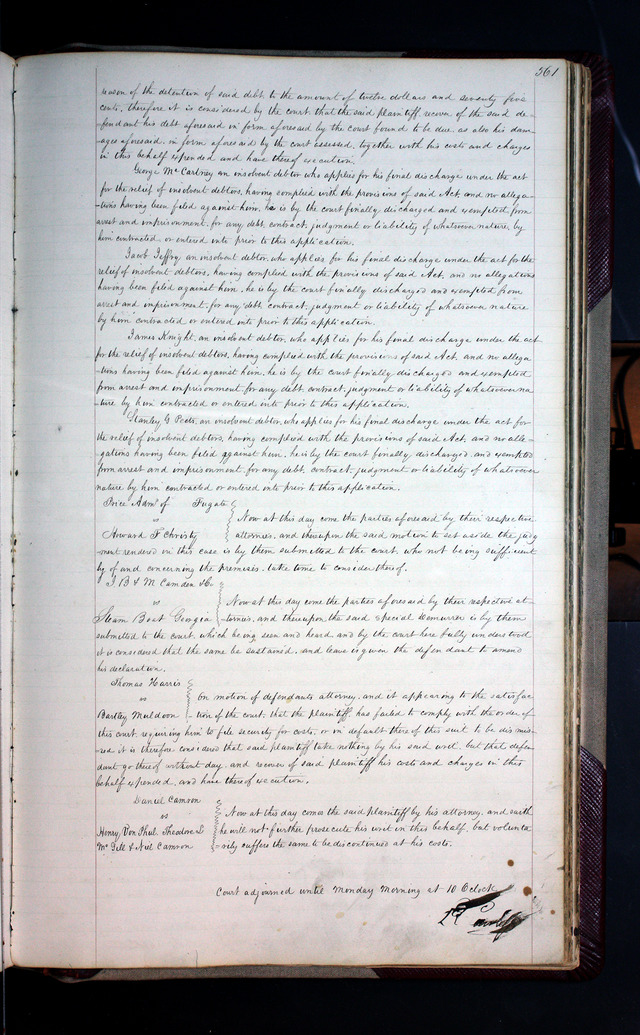 361
reason of the detention of said debt, to the amount of twelve dollars and seventy five
cents, therefore it is considered by the court that the said plaintiff recover of the said de-
fendant his debt aforesaid in form aforesaid by the court found to be due, as also his dam-
ages aforesaid, in form aforesaid by the court assessed, together with his costs and charges
in this behalf expended and have thereof execution.
George McCartney an insolvent debtor who applies for his final discharge under the act
for the relief of insolvent debtors, having complied with the provisions of said Act, and no allega-
-tions having been filed against him, he is by the court finally discharged and exempted from
arrest and imprisonment, for any debt, contract, judgment or liability of whatsoever nature, by
him contracted or entered into prior to this application.
Jacob Jeffry, an insolvent debtor, who applies for his final discharge under the act for the
relief of insolvent debtors, having complied with the provisions of said Act, and no allegations
having been filed against him, he is by the court finally discharged and exempted from
arrest and imprisonment, for any debt, contract, judgment or liability of whatsoever nature
by him contracted or entered into prior to this application.
James Knight, an insolvent debtor, who applies for his final discharge under the act
for the relief of insolvent debtors, having complied with the provisions of said Act, and no allega
-tions having been filed against him, he is by the court finally discharged and exempted
from arrest and imprisonment, for any debt, contract, judgment or liability of whatsoever na
-ture by him contracted or entered into prior to this application.
Stanley G. an insolvent debtor, who applies for his final discharge under the act for
the relief of insolvent debtors, having complied with the provisions of said Act, and no alle-
gations having been filed against him, he is by the court finally discharged, and exempted
from arrest and imprisonment, for any debt, contract, judgment or liability of whatsoever
nature by him contracted or entered into prior to this application.
Price Admr of Fugate
vs
Howard F Christy
Now at this day come the parties aforesaid by their respective
attornies, and thereupon the said motion to set aside the judg
-ment rendered in this case is by them submitted to the court, who not being sufficient
ly of and concerning the premises, take time to consider thereof.
J B & M Camden & Co
vs
Steam Boat Georgia
Now at this day come the parties aforesaid by their respective at-
-tornies, and thereupon the said special Demurrer is by them
submitted to the court, which being seen and heard, and by the court here fully understood
it is considered that the same be sustained, and leave is given the defendant to amend
his declaration.
Thomas Harris
vs
Bartley Muldoon
On motion of defendants attorney, and it appearing to the satisfac
-tion of the court, that the plaintiff has failed to comply with the order of
this court, requiring him to file security for costs, or in default thereof this suit to be dismis-
-sed it is therefore considered that said plaintiff take nothing by his said writ, but that defen
dant go thereof without day, and recover of said plaintiff his costs and charges in this
behalf expended, and have thereof execution.
Daniel Camron
vs
Henry Von Phul. Theodore L
McGill & Neil Camron
Now at this day comes the said plaintiff by his attorney, and saith
he will not further prosecute his writ in this behalf, but volunta
-rily suffers the same to be discontinued at his costs.
Court adjourned until Monday Morning at 10 Oclock